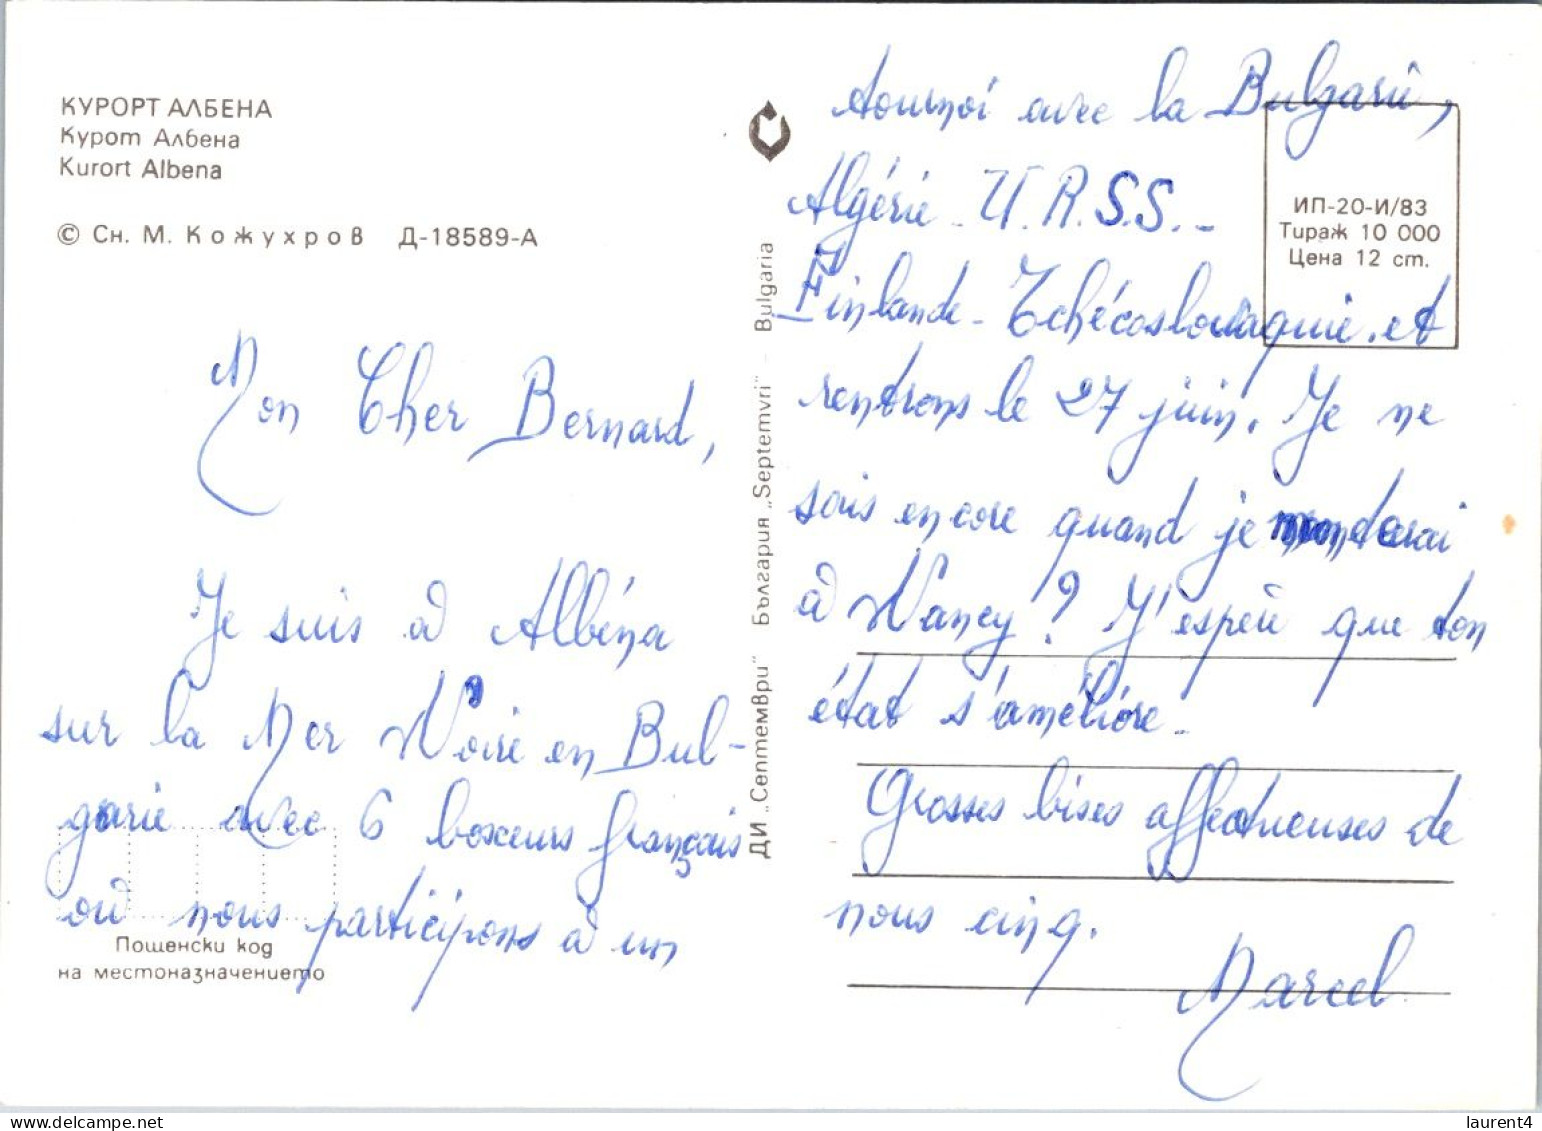 КУРОРТ АЛБЕНА
Курот Албена
Kurort Albena
© Сн. М. Кожухров Д-18589-А
Mon Cher Bernard,
Je suis à Albéna
sur la Mer Noire en Bul-
garie avec 6 boxeurs français
où nous participons à un
Пощенски код
на местоназначението
ДИ „Септември" България „Septemvri" Bulgaria
tournoi avec la Bulgarie,
Algérie - U.R.S.S. -
Finlande - Tchécoslovaquie. et
rentrons le 27 juin. Je ne
sais encore quand je monterai
à Nancy ? J'espère que ton
état s'améliore -
Grosses bises affectueuses de
nous cinq.
Marcel
ИП-20-И/83
Тираж 10 000
Цена 12 ст.
delcampe.net
laurent4